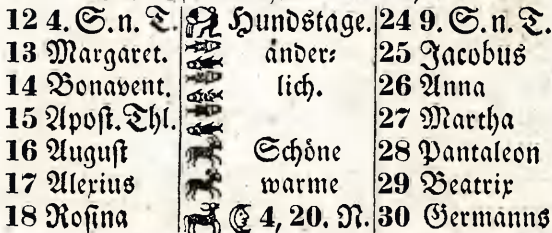 12 4. S. n. T. Hundstage. 24 9. S. n. T.
13 Margaret. änder⸗ 25 Jacobus
14 Bonavent. lich. 26 Anna
15 Apost. Thl. 27 Martha
16 August Schöne 28 Pantaleon
17 Alexius warme 29 Beatrix
18 Rosina ☾ 4, 20. N. 30 Germanns